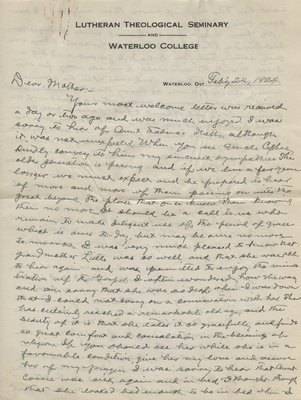 LUTHERAN THEOLOGICAL SEMINARY
AND
WATERLOO COLLEGE
WATERLOO, ONT. Feb'y 24, 1924.
Dear Mother:-
Your most welcome letter was received
a day or two ago and was much enjoyed. I was
sorry to hear of Aunt death, although
it was not unexpected. When you see Uncle
kindly convey to him my sincerest sympathies. The
older generation is passing and if we live a few years
longer we must expect and be prepared to hear
of more and more of them passing on into the
great beyond the place that once knew them knowing
them no more. It should be a call to us who
remain to make diligent use of the period of grace
which is ours to-day but may be ours no more
to-morrow. I was very much pleased to know that
grandmother was so well and that she was able
to hear again and was permitted to enjoy the
of the gospel. I often wondered how she was
and am sorry that she was so deaf when I was down
that I could not carry on a conversation with her. She
has certainly reached a remarkable old age and the
beauty of it is that she takes it so gracefully and finds
so great comfort and consolation in the blessings of
religion. If you should see her while she is in a
favourable condition give her my love and assure
her of my prayers. I was sorry to hear that Aunt
was sick again and in bed. I thought though
that she looked bad enough to be in bed when I